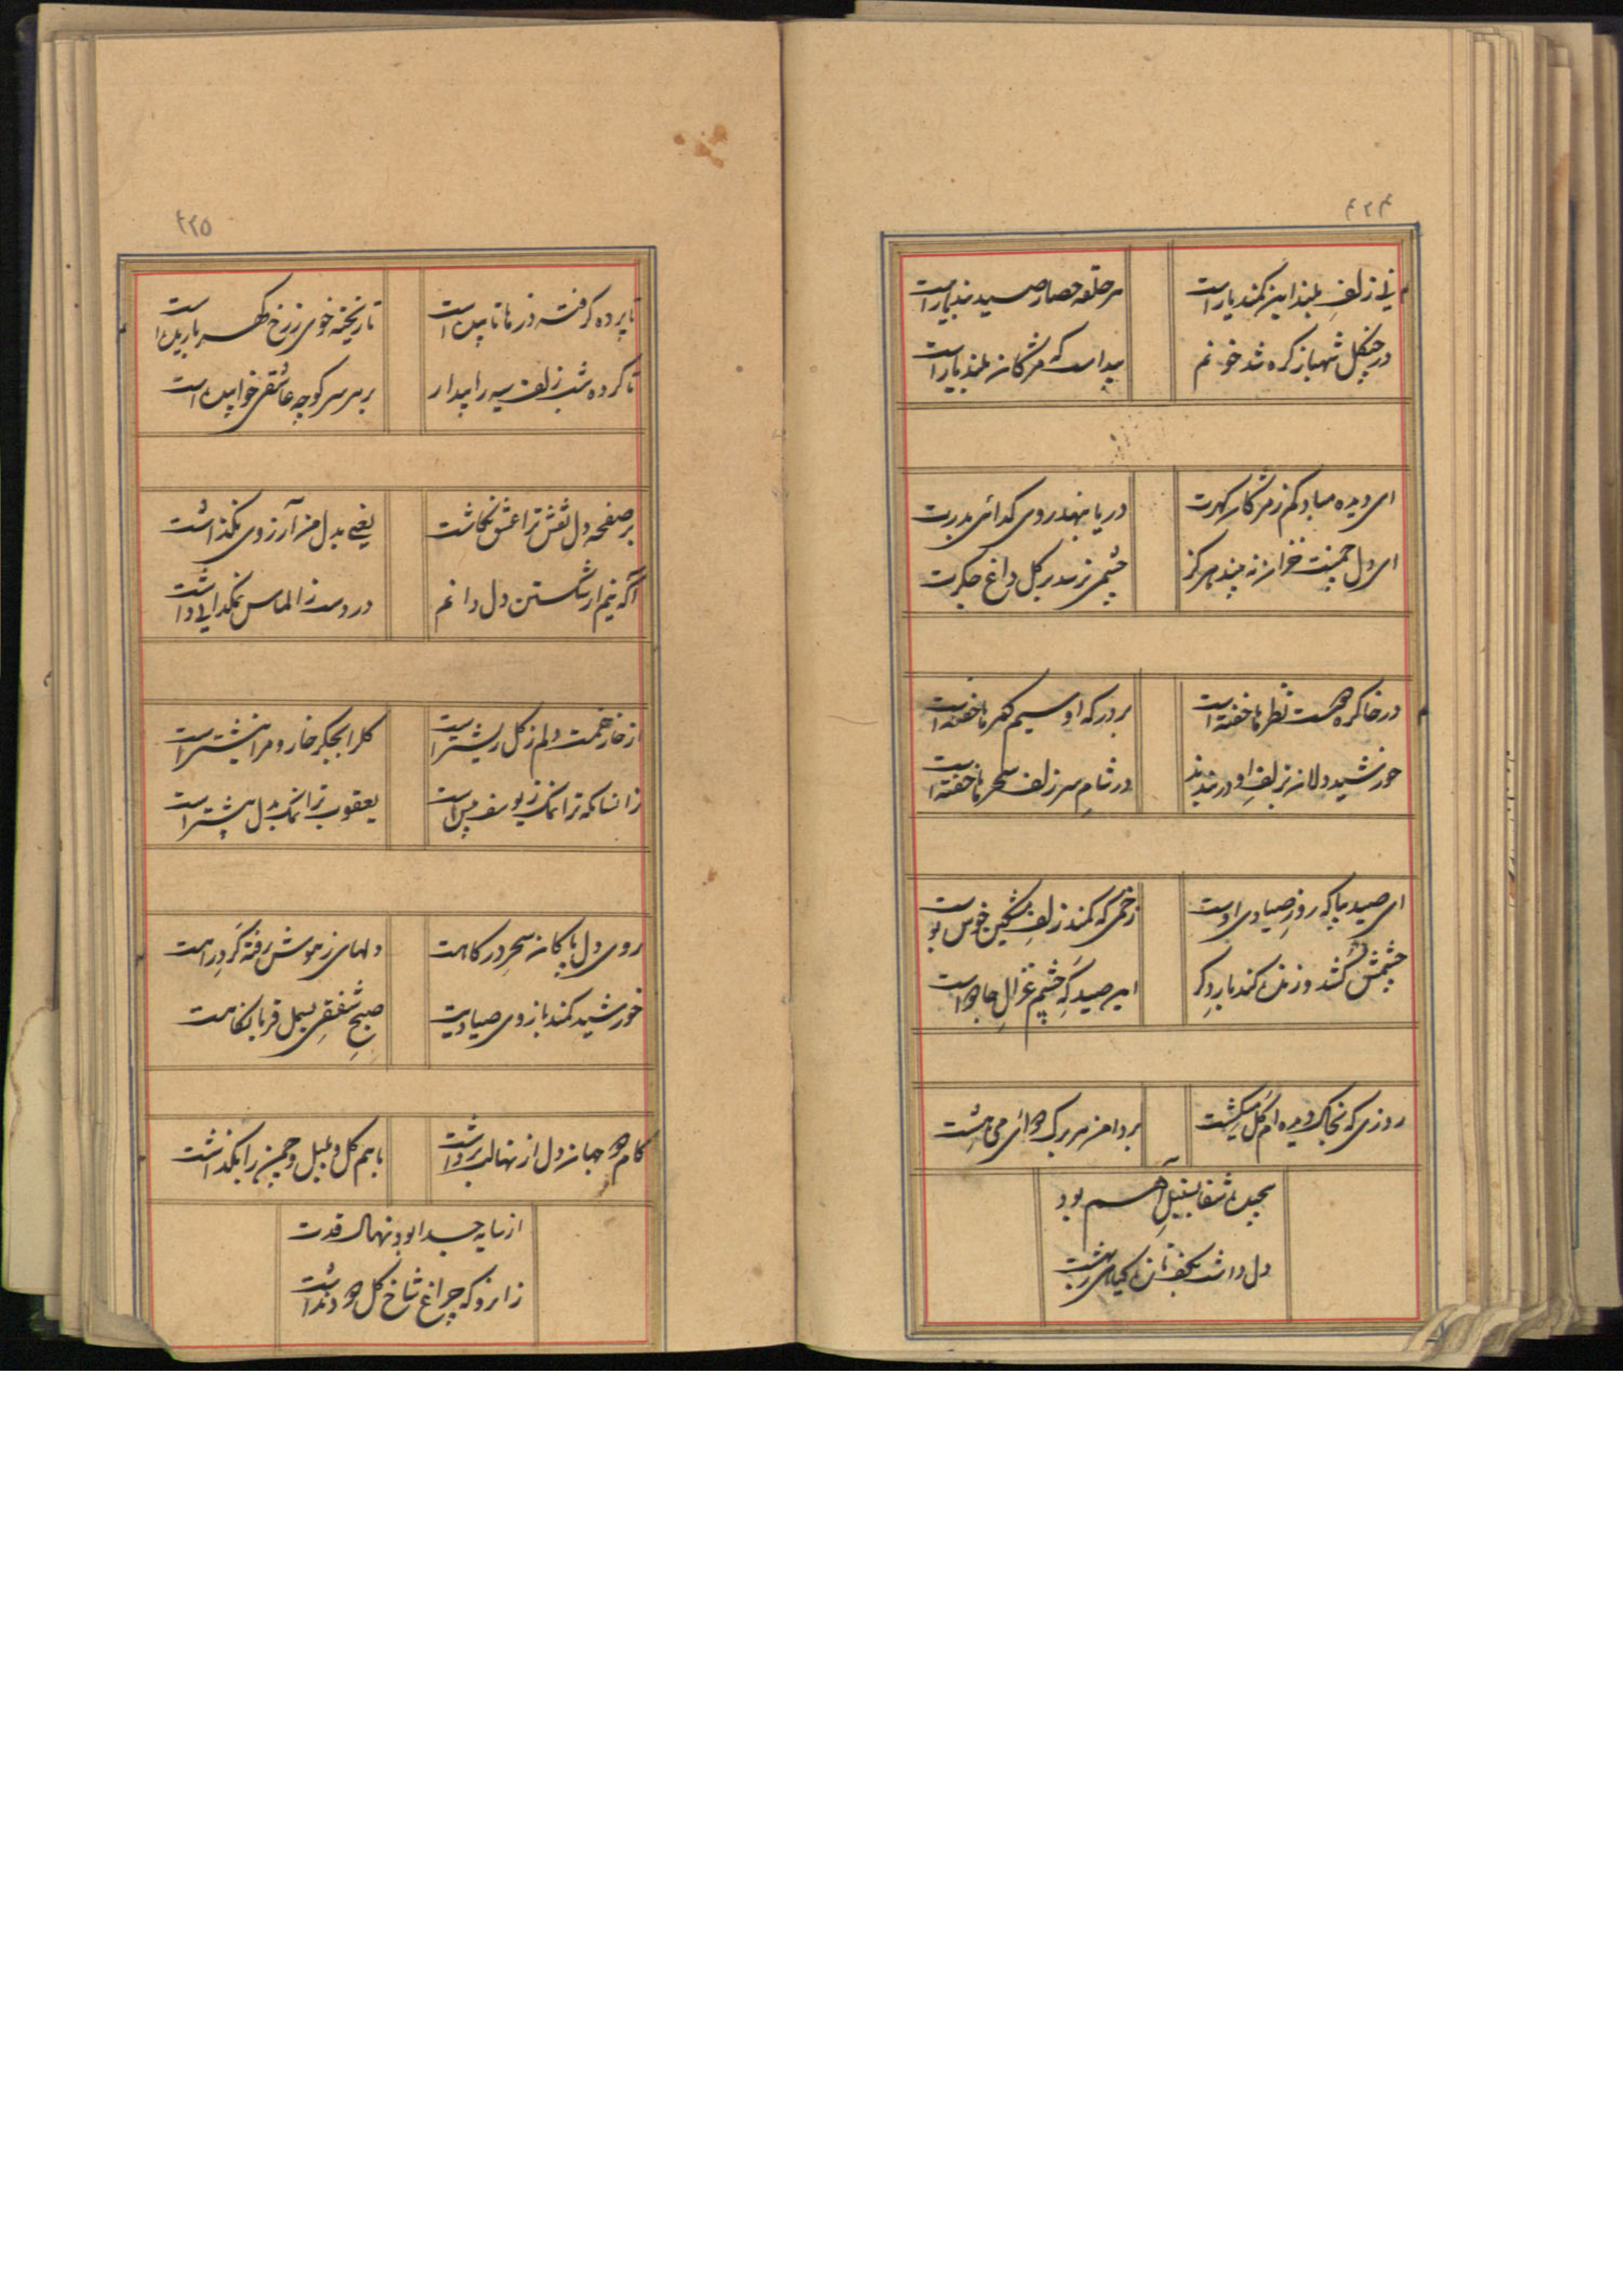 ۴۲۴
نی زلف بلند این کمند یار است
هر حلقه حصار صید بند یار است
در چنگل شهباز گره شد خونم
پیداست که مژگان بلند یار است
ای دیده مباد کم ز مژگان گهرت
دریا نهد روی گدائی بدرت
ای دل چمنت خزان نه بیند هرگز
چشمی نرسد بر گل داغ جگرت
در خاک رهست نظر ما خفته است
بر درگه او سیم گهر ما خفته است
خورشید دلان بزلف او در بندند
در شام سر زلف سحر ما خفته است
ای صید بیا که روز صیادی اوست
زخمی که کمند زلف مشکین خوش بوست
چشمش کشد و زلف کمند
این صید که چشم غزال جادوست
روزی که بخاک دیده ام گل میکشت
بر دامن هر برگ هوائی می هشت
پیچیده سنبل آهم بود
دل داشت بکف
۴۲۵
تا پرده گرفته در ما تابیده است
تا ریخته خوی ز رخ گهر باریده است
تا کرده شب زلف سیه را بیدار
بر هر سر کوچه عاشقی خوابیده است
بر صفحه دل نقش ترا عشق نگاشت
یعنی بدل من آرزوی نگذاشت
آگه نیم از شکستن دل دانم
در دست ز الماس نمکدانی داشت
از خار غمت دلم ز گل ریشتر است
گل را بجگر خار و مرا نیشتر است
زانسان که ترا نمک ز یوسف بیش است
یعقوب ترا نمک بدل بیشتر است
روی دل پاکان سحر درگاهت
دلهای ز هوش رفته گرد راهت
خورشید کمند بازوی صیادیت
صبح شفقی بسمل قربانگاهت
کام جان دل از نهالت برداشت
باهم گل و بلبل و چمن را بگذاشت
از سایه جدا بود نهال قدت
زانرو که چراغ شاخ گل دود نداشت